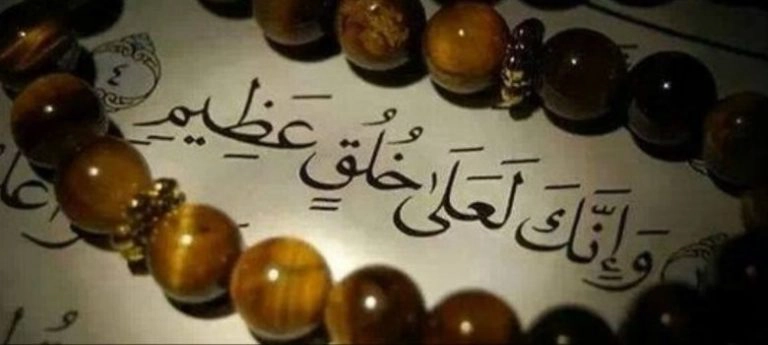 وَإِنَّكَ لَعَلَىٰ خُلُقٍ عَظِيمٍ ٤